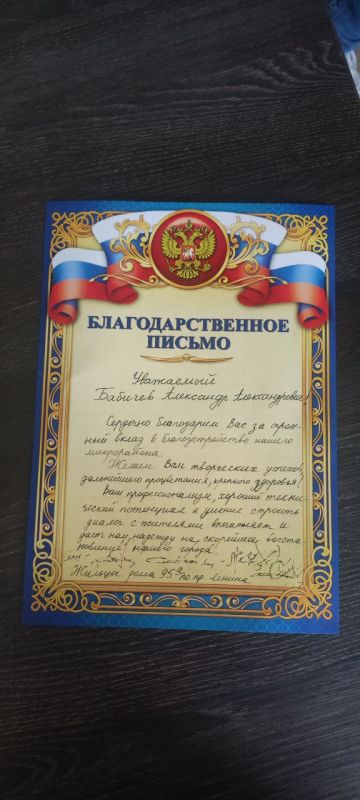 БЛАГОДАРСТВЕННОЕ
ПИСЬМО
Уважаемый
Бабичев Александр Александрович!
Сердечно благодарим Вас за огром-
ный вклад в благоустройство нашего
микрорайона.
Желаем Вам творческих успехов,
дальнейшего процветания, крепкого здоровья!
Ваш профессионализм, хороший техни-
ческий потенциал и умение строить
диалог с жителями впечатляет и
дает нам надежду на скорейшее восста-
новление нашего города!
Жильцы дома 95а по пр. Ленина